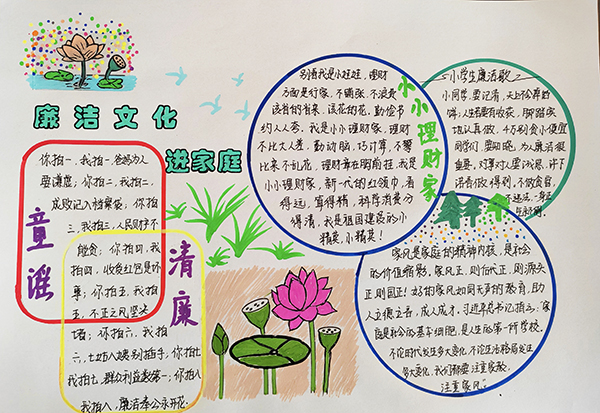 廉洁文化
进家庭
童谣
清廉
你拍一，我拍一，爸妈为人
要谦虚；你拍二，我拍二，
成败记入档案袋，你拍
三，我拍三，人民财产不
能贪；你拍四，我
拍四，收受红包是坏
事；你拍五，我拍
五，不正之风坚决
堵；你拍六，我拍
六，七城八姨别插手，你拍七
我拍七，群众利益数第一；你拍八
我拍八，廉洁奉公永开花。
小小理财家
别看我是小娃娃，理财
方面是行家，不铺张，不浪费
该省的省来，该花的花，勤俭节
约人人夸，我是小小理财家，理财
不比大人差，勤动脑，巧计算，不攀
比来不乱花，理财章在胸前挂，我是
小小理财家，新一代的红领巾，看
得远，算得精，科学消费分
得清，我是祖国建设的小
精英，小精英！
小学生廉洁歌
小同学，要记清，天上不会掉的
饼；人生要有收获，脚踏实
地认真做，千万别贪小便宜
同学们，要知晓，为人廉洁很
重要，
语言做得到，不做贪官，
家风是家庭的精神内核，是社会
的价值缩影，家风正，则后代正，则源头
正则国正！好的家风如同无声的教育，助
人立德立言，成人成才，习近平总书记指出：家
庭是社会的基本细胞，是人生的第一所学校，
不论时代发生多大变化，不论生活格局发生
多大变化，我们都要注重家教，
注重家风。